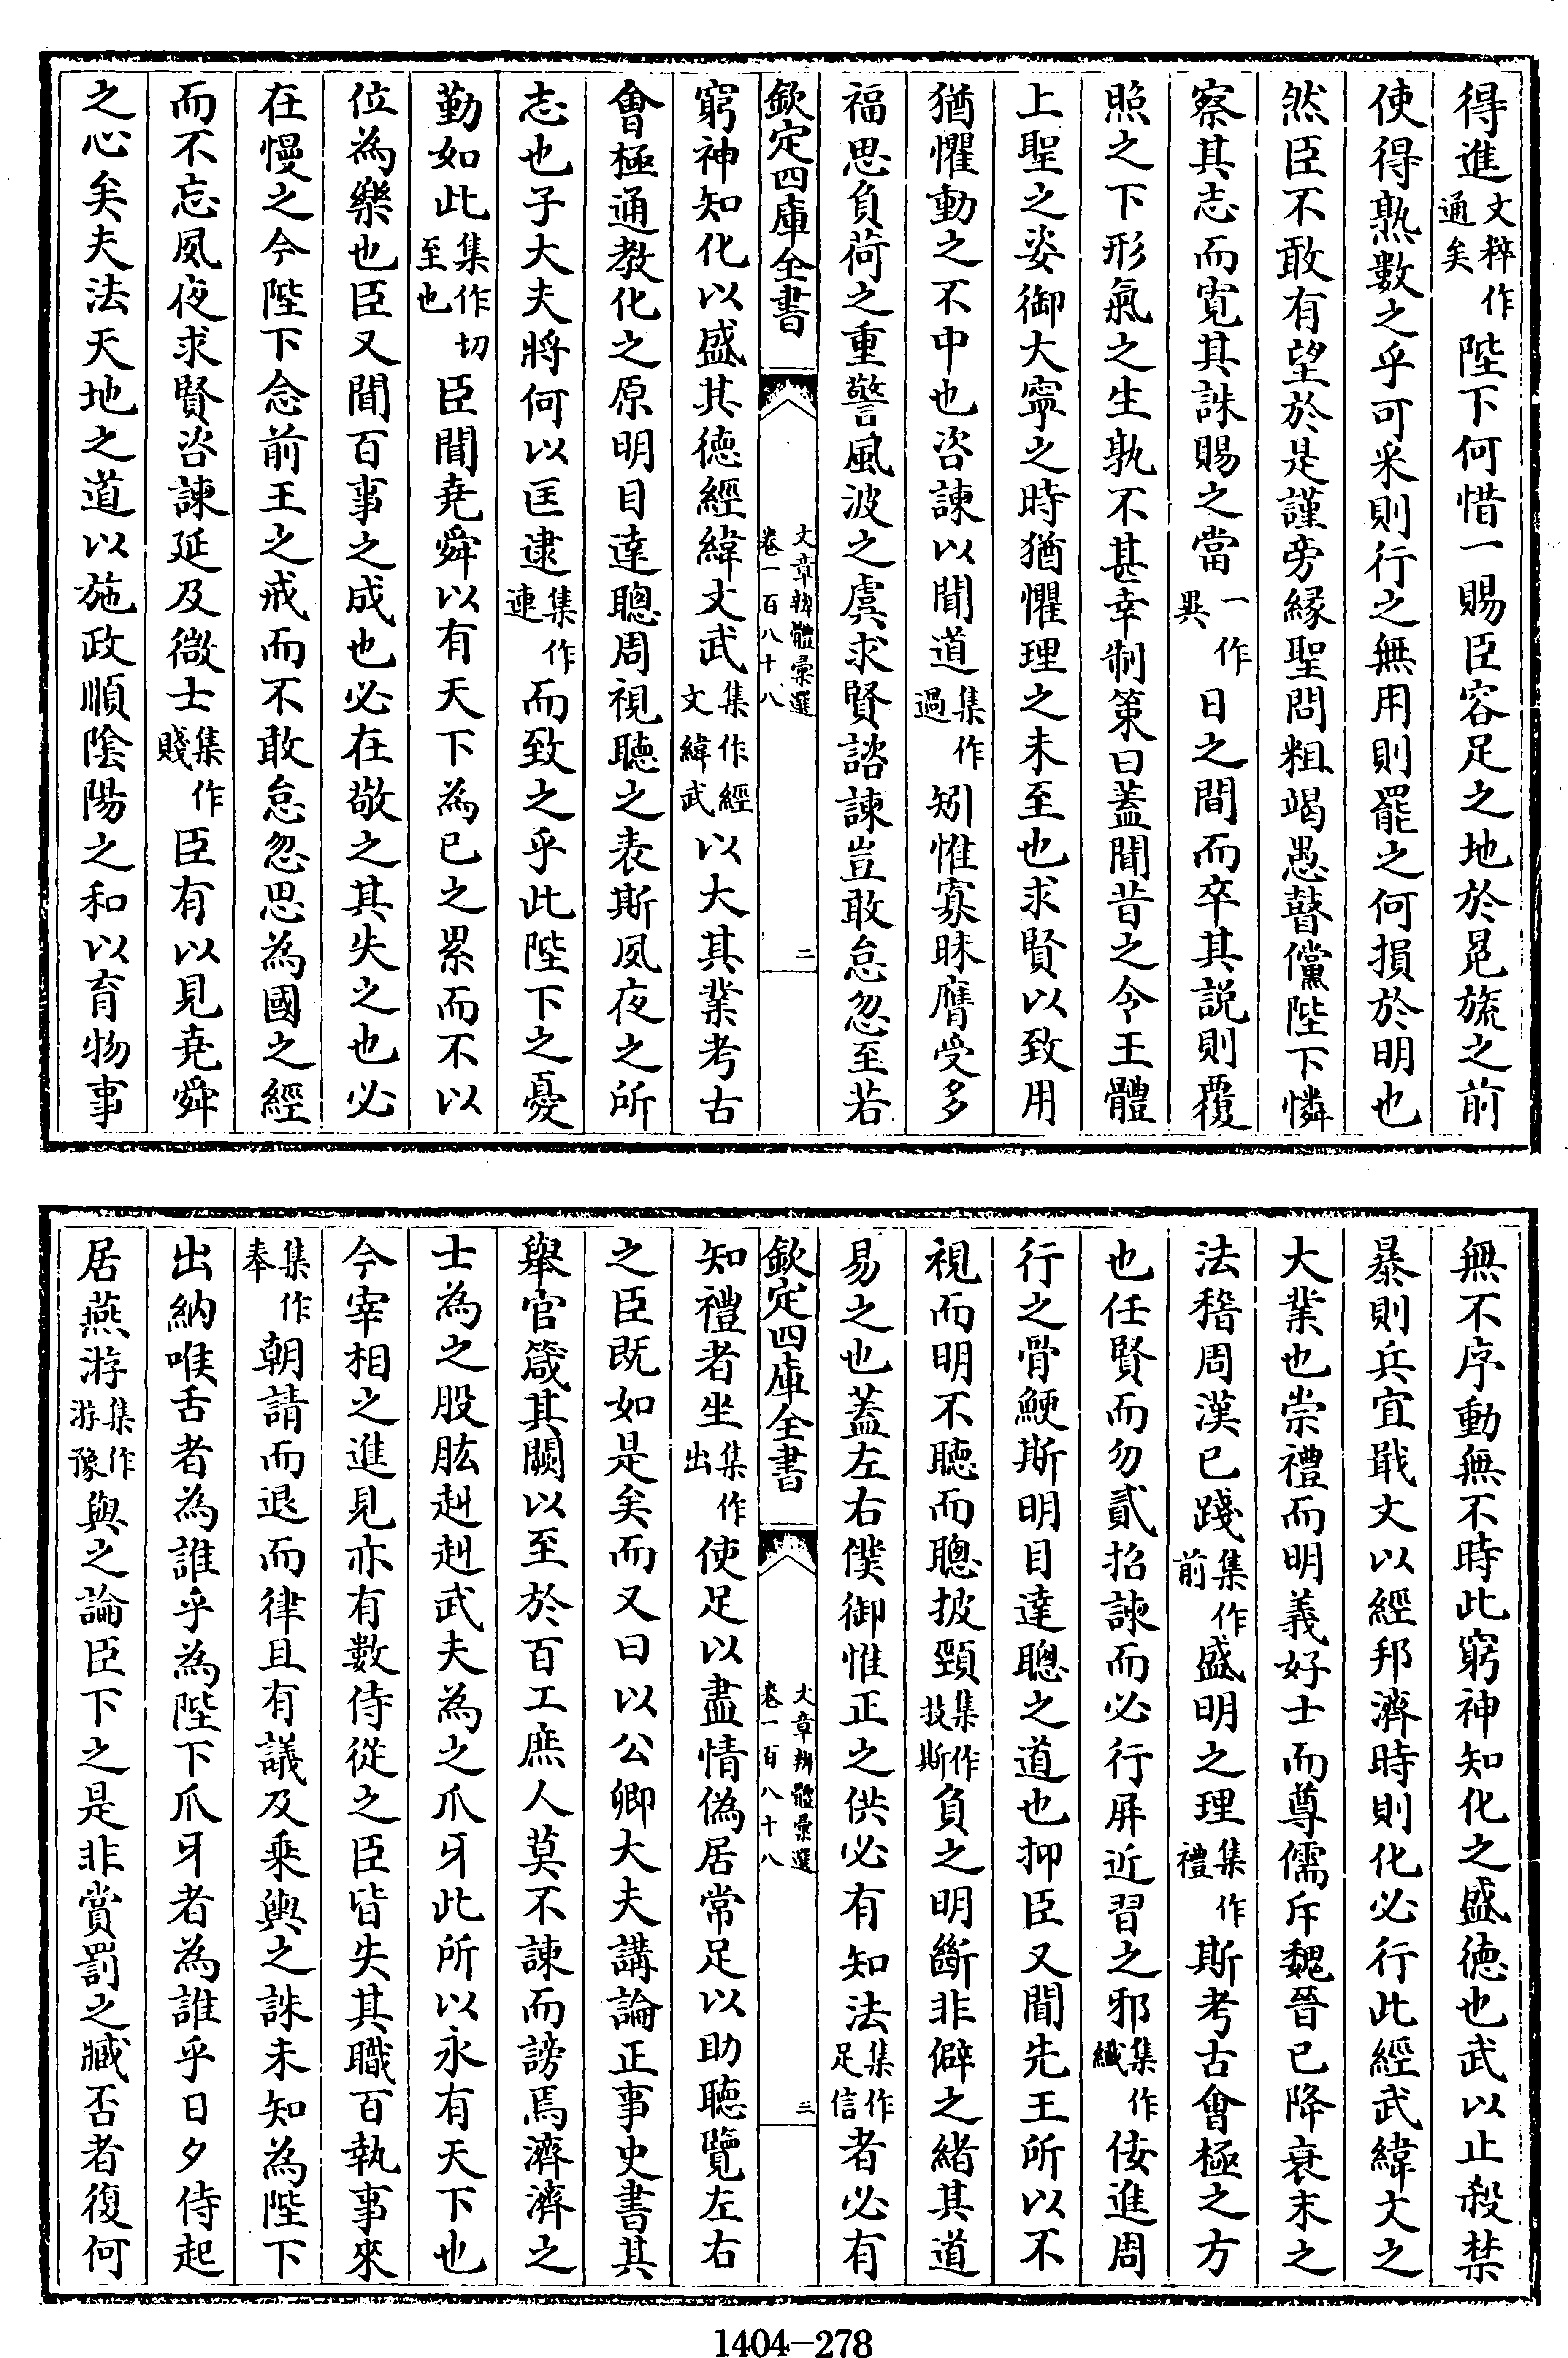 得進文粹作通矣陛下何惜一賜臣容足之地於冕旒之前
使得熟數之乎可采則行之無用則罷之何損於明也
然臣不敢有望於是謹旁緣聖問粗竭愚瞽儻陛下憐
察其志而寛其誅賜之當一作異日之間而卒其説則覆
照之下形氣之生孰不甚幸制策曰蓋聞昔之令王體
上聖之姿御大寧之時猶懼理之未至也求賢以致用
猶懼動之不中也咨諫以聞道集作過矧惟寡昧膺受多
福思負荷之重警風波之虞求賢諮諫豈敢怠忽至若
欽定四庫全書
文章辨體彙選
卷一百八十八
二
窮神知化以盛其德經緯文武集作經文緯武以大其業考古
會極通教化之原明目達聰周視聽之表斯夙夜之所
志也子大夫將何以匡逮集作連而致之乎此陛下之憂
勤如此集作切至也臣聞堯舜以有天下為已之累而不以
位為樂也臣又聞百事之成也必在敬之其失之也必
在慢之今陛下念前王之戒而不敢怠忽思為國之經
而不忘夙夜求賢咨諫延及微士集作賤臣有以見堯舜
之心矣夫法天地之道以施政順陰陽之和以育物事
無不序動無不時此窮神知化之盛徳也武以止殺禁
暴則兵宜戢文以經邦濟時則化必行此經武緯文之
大業也崇禮而明義好士而尊儒斥魏晉已降衰末之
法稽周漢已踐集作前盛明之理集作禮斯考古會極之方
也任賢而勿貳招諫而必行屏近習之邪集作纖佞進周
行之骨鯁斯明目達聰之道也抑臣又聞先王所以不
視而明不聽而聰披頸集作技斯負之明斷非僻之緒其道
易之也蓋左右僕御惟正之供必有知法集作足信者必有
欽定四庫全書
文章辨體彙選
卷一百八十八
三
知禮者坐集作出使足以盡情偽居常足以助聽覽左右
之臣既如是矣而又曰以公卿大夫講論正事史書其
舉官箴其闕以至於百工庶人莫不諫而謗焉濟濟之
士為之股肱赳赳武夫為之爪牙此所以永有天下也
今宰相之進見亦有數侍從之臣皆失其職百執事來
集作奉朝請而退而律且有議及乘輿之誅未知為陛下
出納喉舌者為誰乎為陛下爪牙者為誰乎日夕侍起
居燕游集作游豫與之論臣下之是非賞罰之臧否者復何
1404-278